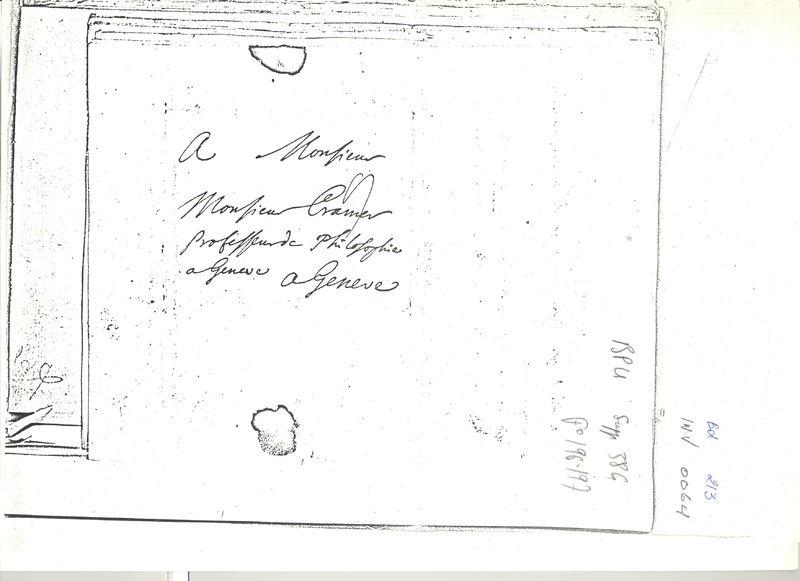 A Monsieur
Monsieur Cramer
Professeur de Philosophie
a Geneve
a Geneve
BPU Supp 384
fo 196-197
Bd 213
INV 0064